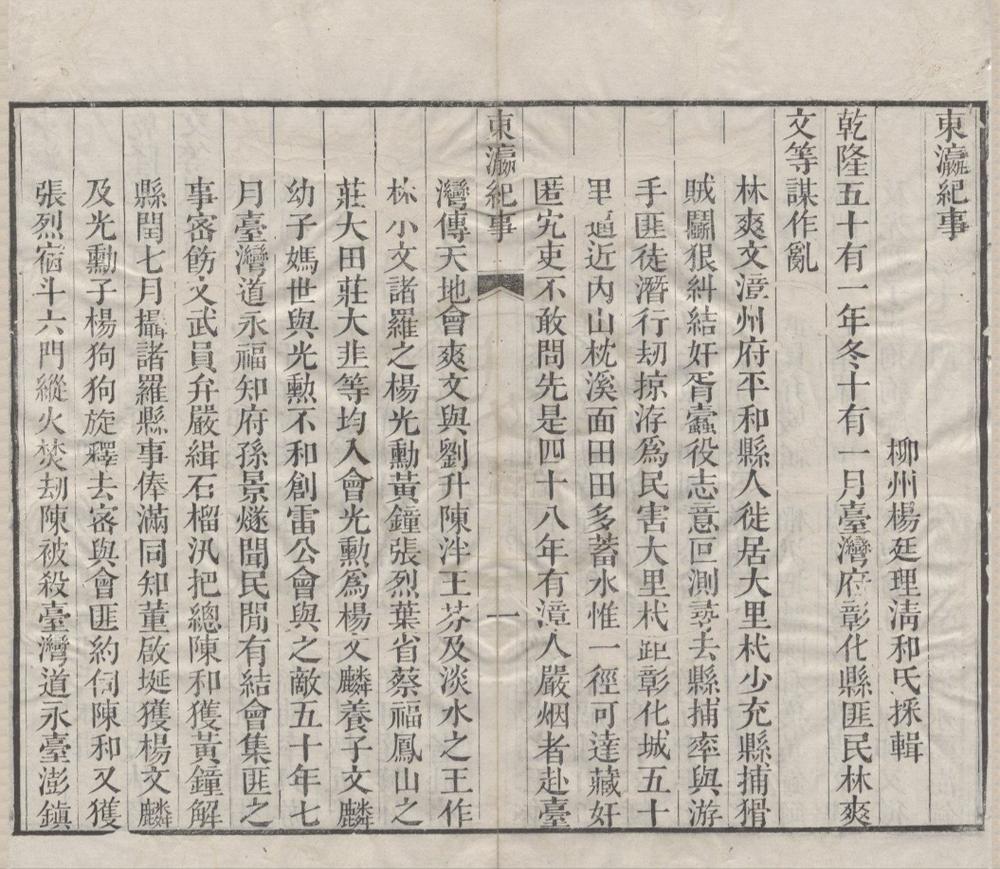 東瀛紀事
柳州楊廷理淸和氏採輯
乾隆五十有一年冬十有一月臺灣府彰化縣匪民林爽
文等謀作亂
林爽文漳州府平和縣人徙居大里杙少充縣捕猾
賊鬬狠糾結奸胥蠹役志意叵測尋去縣捕率與游
手匪徒潛行刼掠洊爲民害大里杙距彰化城五十
里逼近內山枕溪面田田多蓄水惟一徑可達藏奸
匿宄吏不敢問先是四十八年有漳人嚴烟者赴臺
東瀛紀事 一
灣傳天地會爽文與劉升陳泮王芬及淡水之王作
林小文諸羅之楊光勳黃鐘張烈葉省蔡福鳳山之
莊大田莊大韭等均入會光勳爲楊文麟養子文麟
幼子媽世與光勳不和創雷公會與之敵五十年七
月臺灣道永福知府孫景燧聞民閒有結會集匪之
事密飭文武員弁嚴緝石榴汛把總陳和獲黃鐘解
縣閏七月攝諸羅縣事俸滿同知董啟埏獲楊文麟
及光勳子楊狗狗旋釋去密與會匪約伺陳和又獲
張烈宿斗六門縱火焚刼陳被殺臺灣道永臺澎鎮